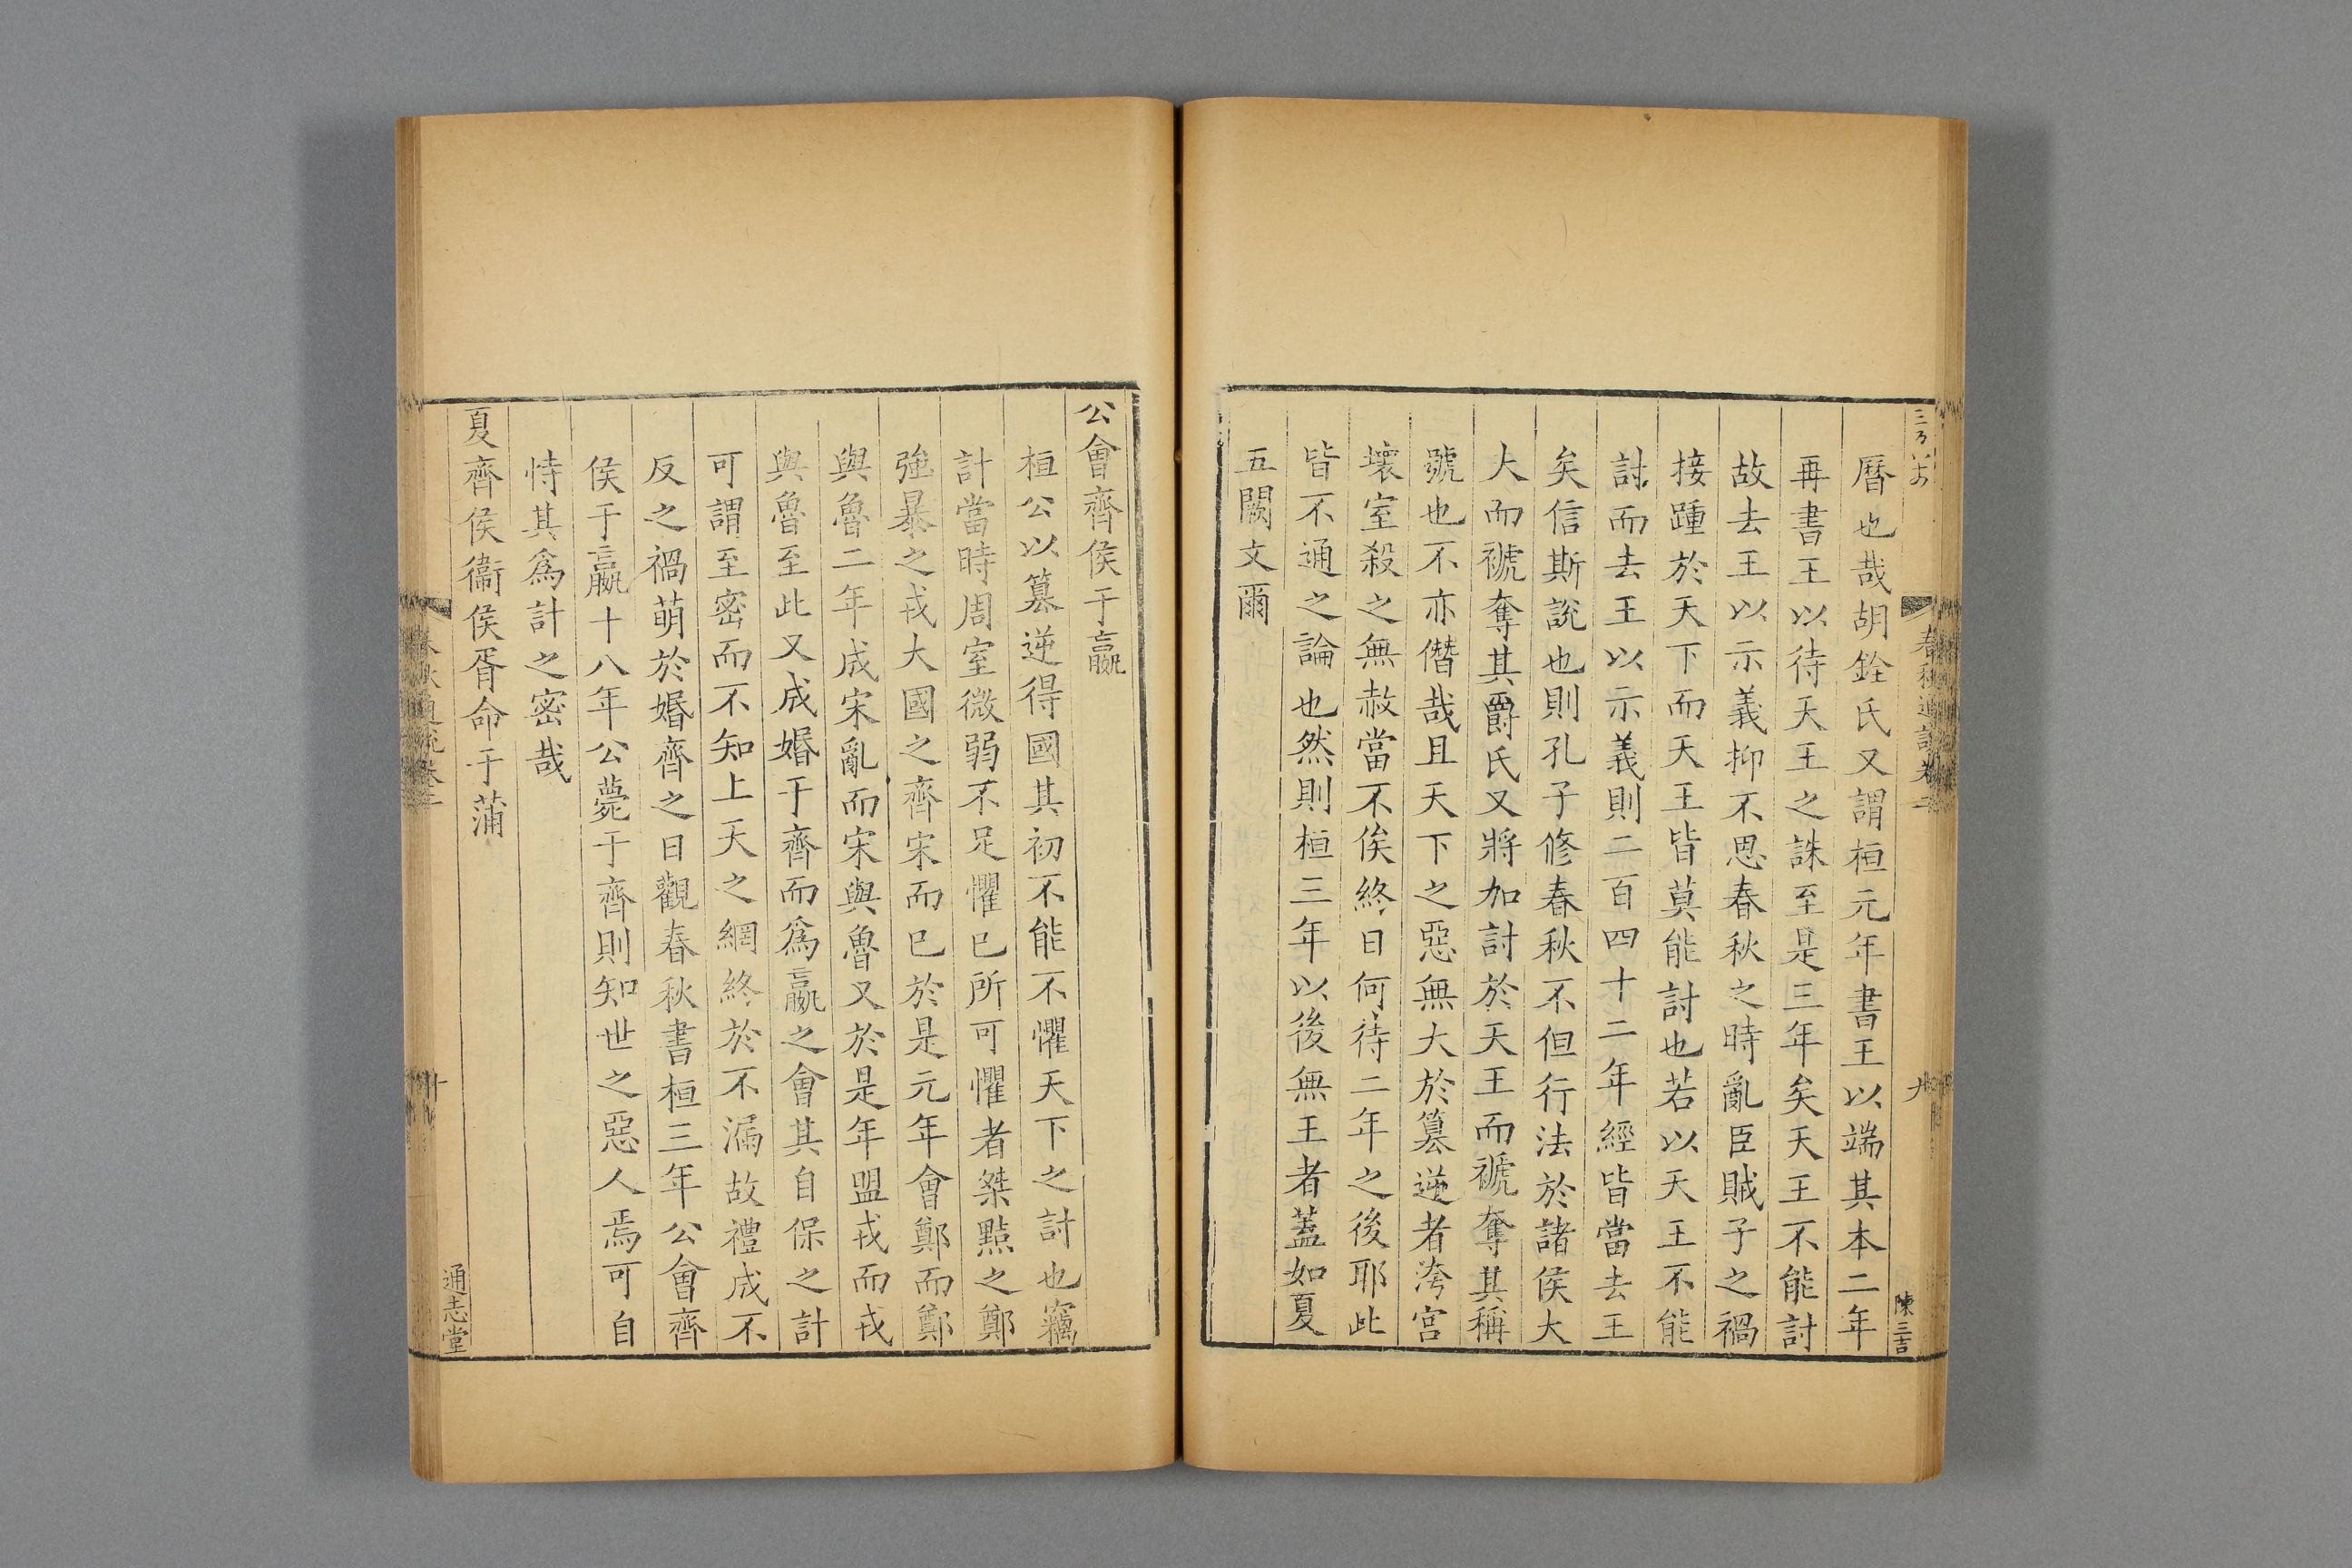 春秋通說卷二
九
陳三吉
曆也哉胡銓氏又謂桓元年書王以端其本二年
再書王以待天王之誅至是三年矣天王不能討
故去王以示義抑不思春秋之時亂臣賊子之禍
接踵於天下而天王皆莫能討也若以天王不能
討而去王以示義則二百四十二年經皆當去王
矣信斯說也則孔子修春秋不但行法於諸侯大
大而褫奪其爵氏又將加討於天王而褫奪其稱
號也不亦僭哉且天下之惡無大於篡逆者洿宮
壞室殺之無赦當不俟終日何待二年之後耶此
皆不通之論也然則桓三年以後無王者蓋如夏
五闕文爾
公會齊侯于嬴
桓公以篡逆得國其初不能不懼天下之討也竊
計當時周室微弱不足懼已所可懼者桀黠之鄭
強暴之戎大國之齊宋而已於是元年會鄭而鄭
與魯二年成宋亂而宋與魯又於是年盟戎而戎
與魯至此又成婚于齊而爲嬴之會其自保之計
可謂至密而不知上天之網終於不漏故禮成不
反之禍萌於婚齊之日觀春秋書桓三年公會齊
侯于嬴十八年公薨于齊則知世之惡人焉可自
恃其爲計之密哉
夏齊侯衞侯胥命于蒲
春秋通說卷二
十
通志堂